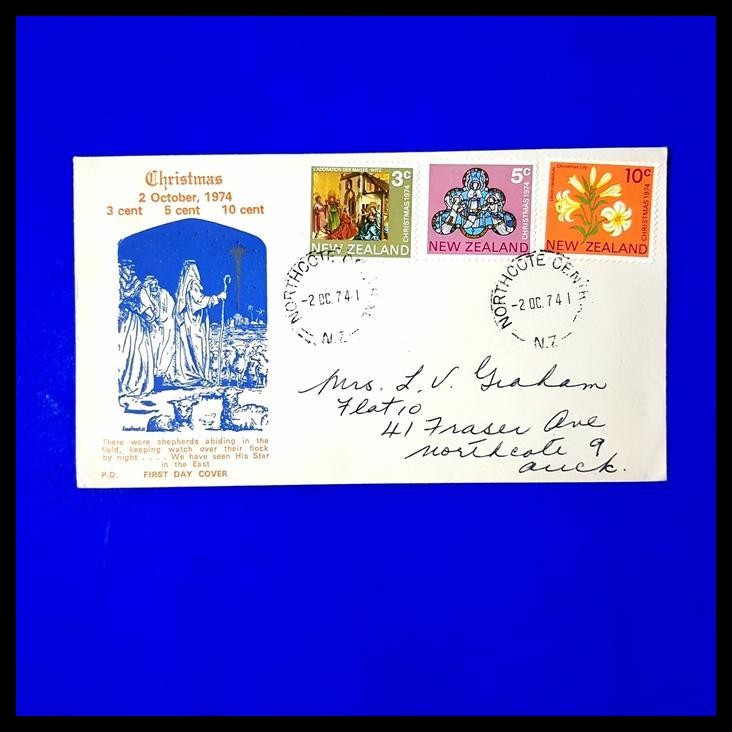 Christmas
2 October, 1974
3 cent 5 cent 10 cent
There were shepherds abiding in the
field, keeping watch over their flock
by night .... We have seen His Star
in the East
P.D. FIRST DAY COVER
L'ADORATION DES MAGES - WITZ
3c
CHRISTMAS 1974
NEW ZEALAND
5c
CHRISTMAS 1974
NEW ZEALAND
Christmas Lily
10c
CHRISTMAS 1974
NEW ZEALAND
NORTHCOTE
-2 OC. 74 1
N.Z.
NORTHCOTE CENTR
-2 OC. 74 1
N.Z.
Mrs. L. V. Graham
Flat 10
41 Fraser Ave
Northcote 9
Auck.